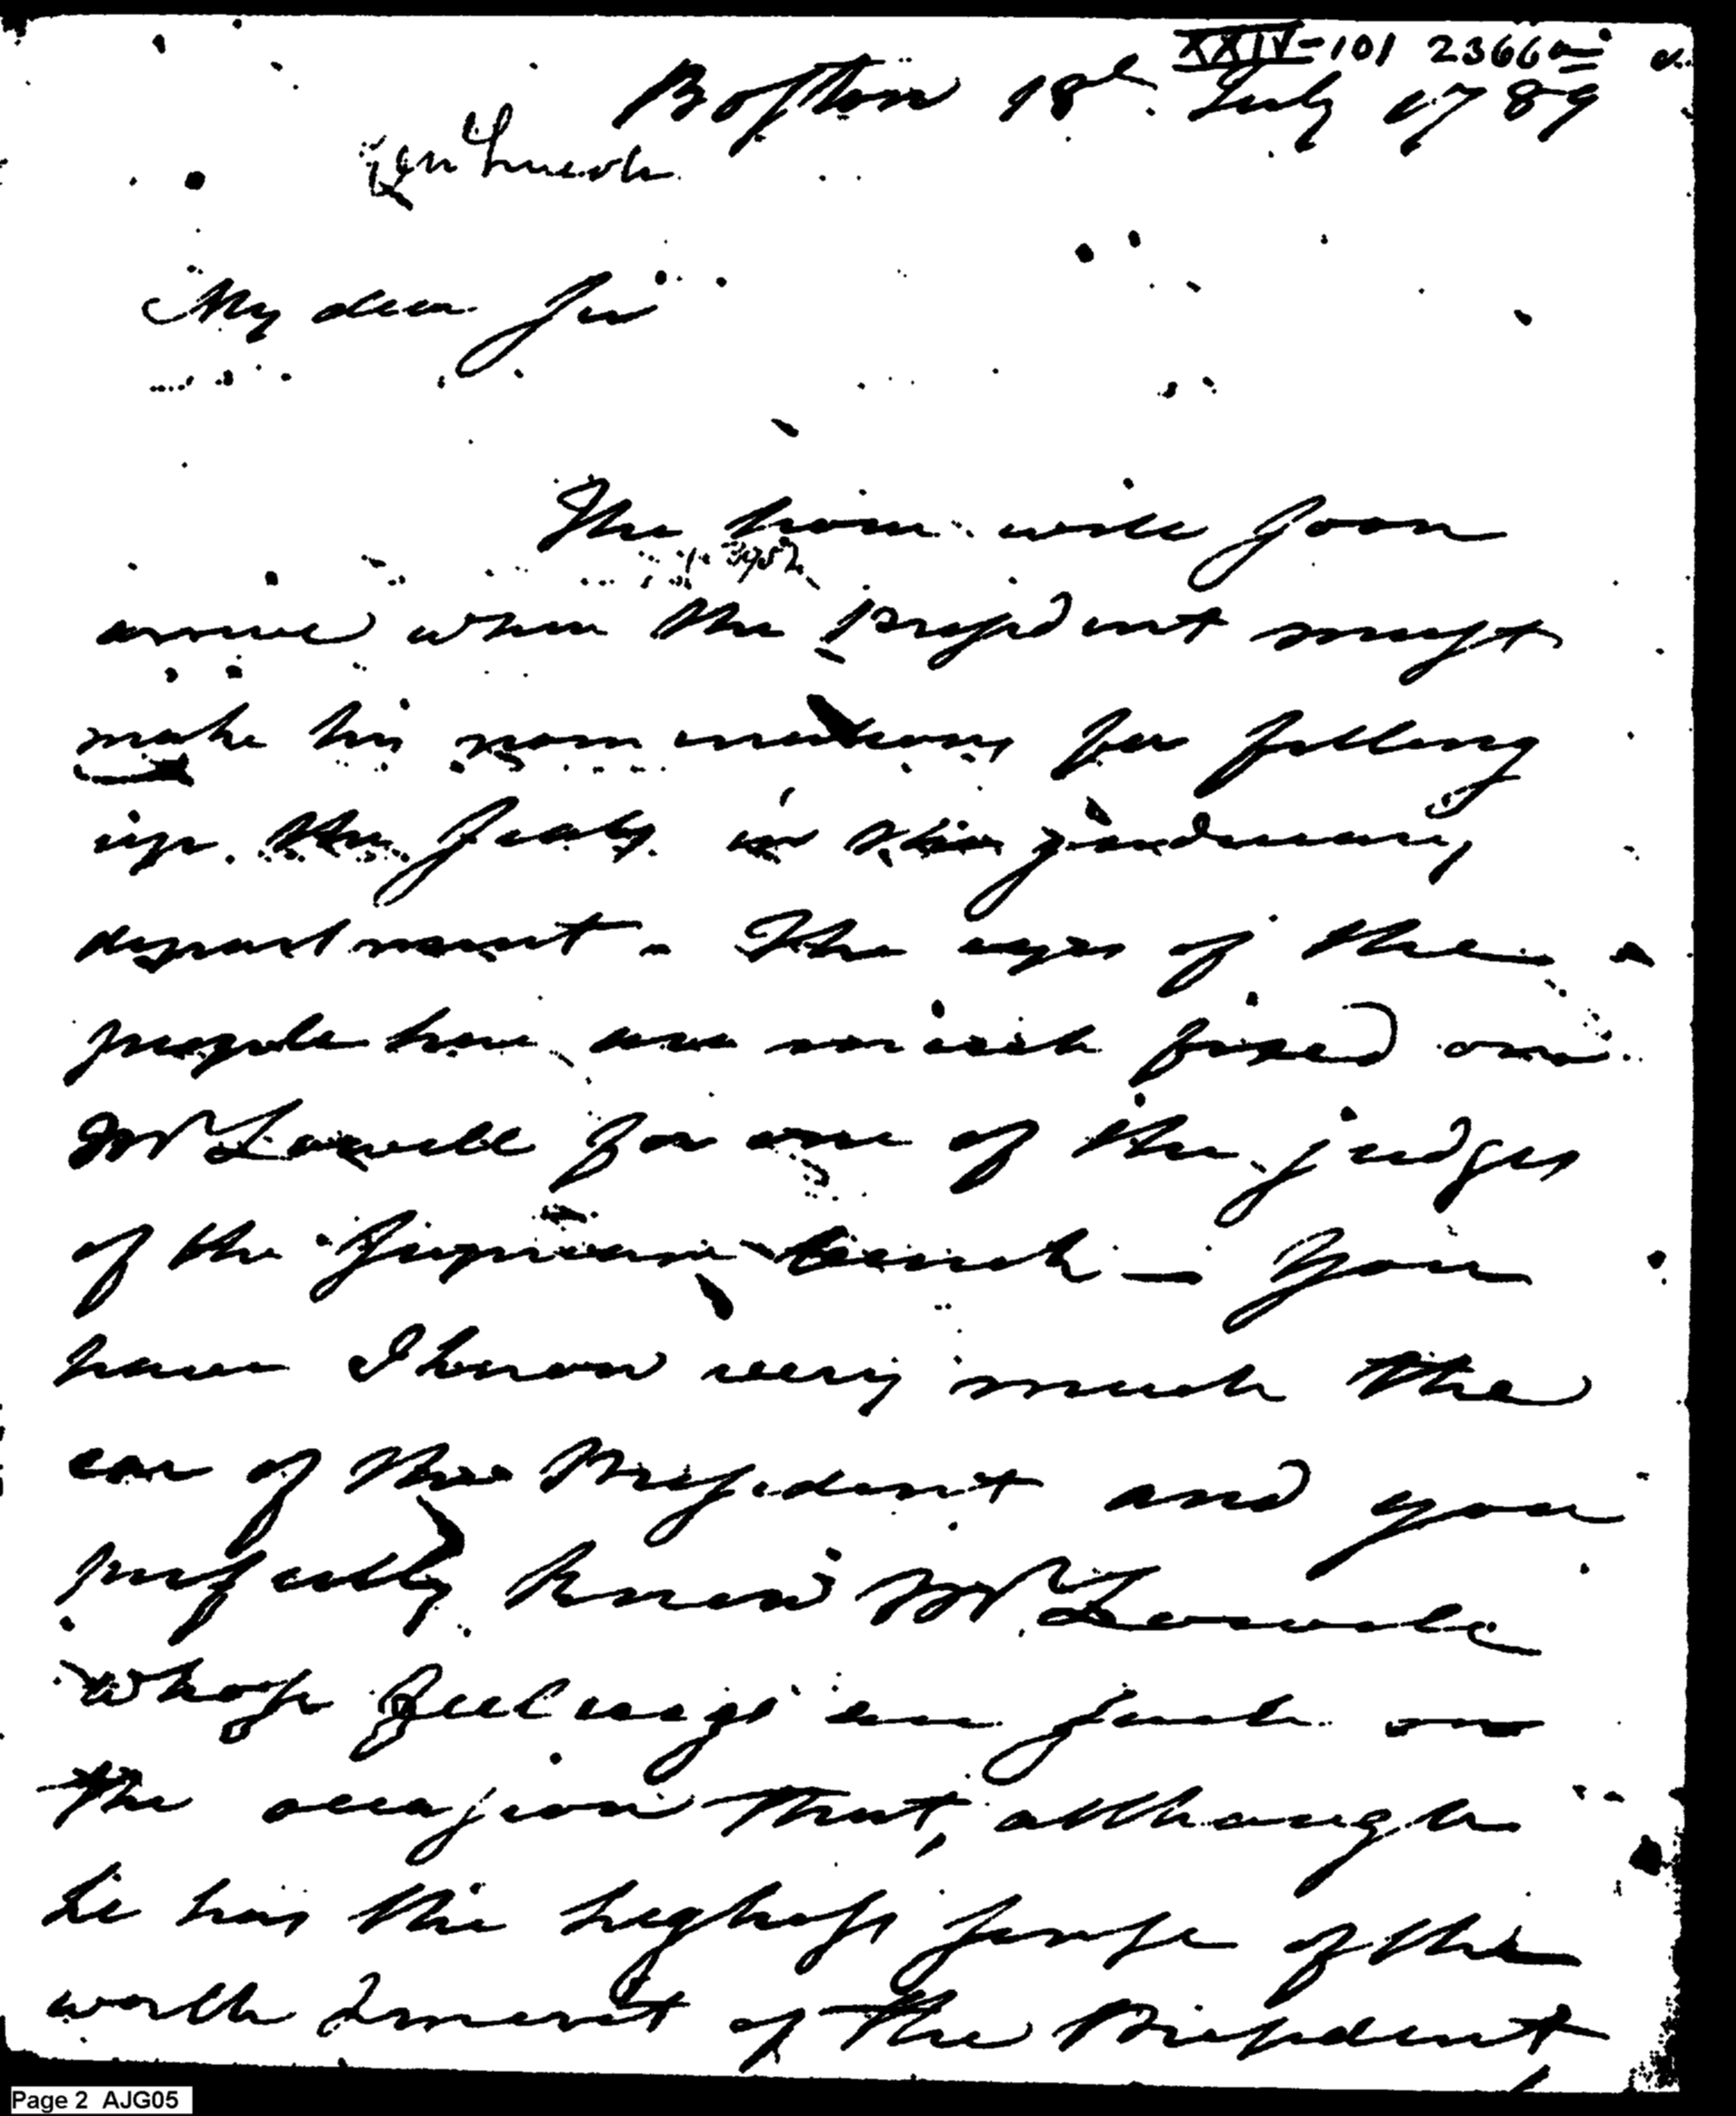 XXIV-101 2366
Boston 18th July 1789
Gen Lincoln
My dear Sir
The time will soon
arrive when the President must
make his nominations for filling
up the seats in the judiciary
department. The eyes of the
people here are much fixed on
Mr Lowell for one of the judges
of the supreme bench — You
have I know very much the
ear of the President and you
perfectly know Mr Lowell
whose feelings are such on
the occasion that, although
he has the highest sense of the
worth & merit of the President
Page 2 AJG05